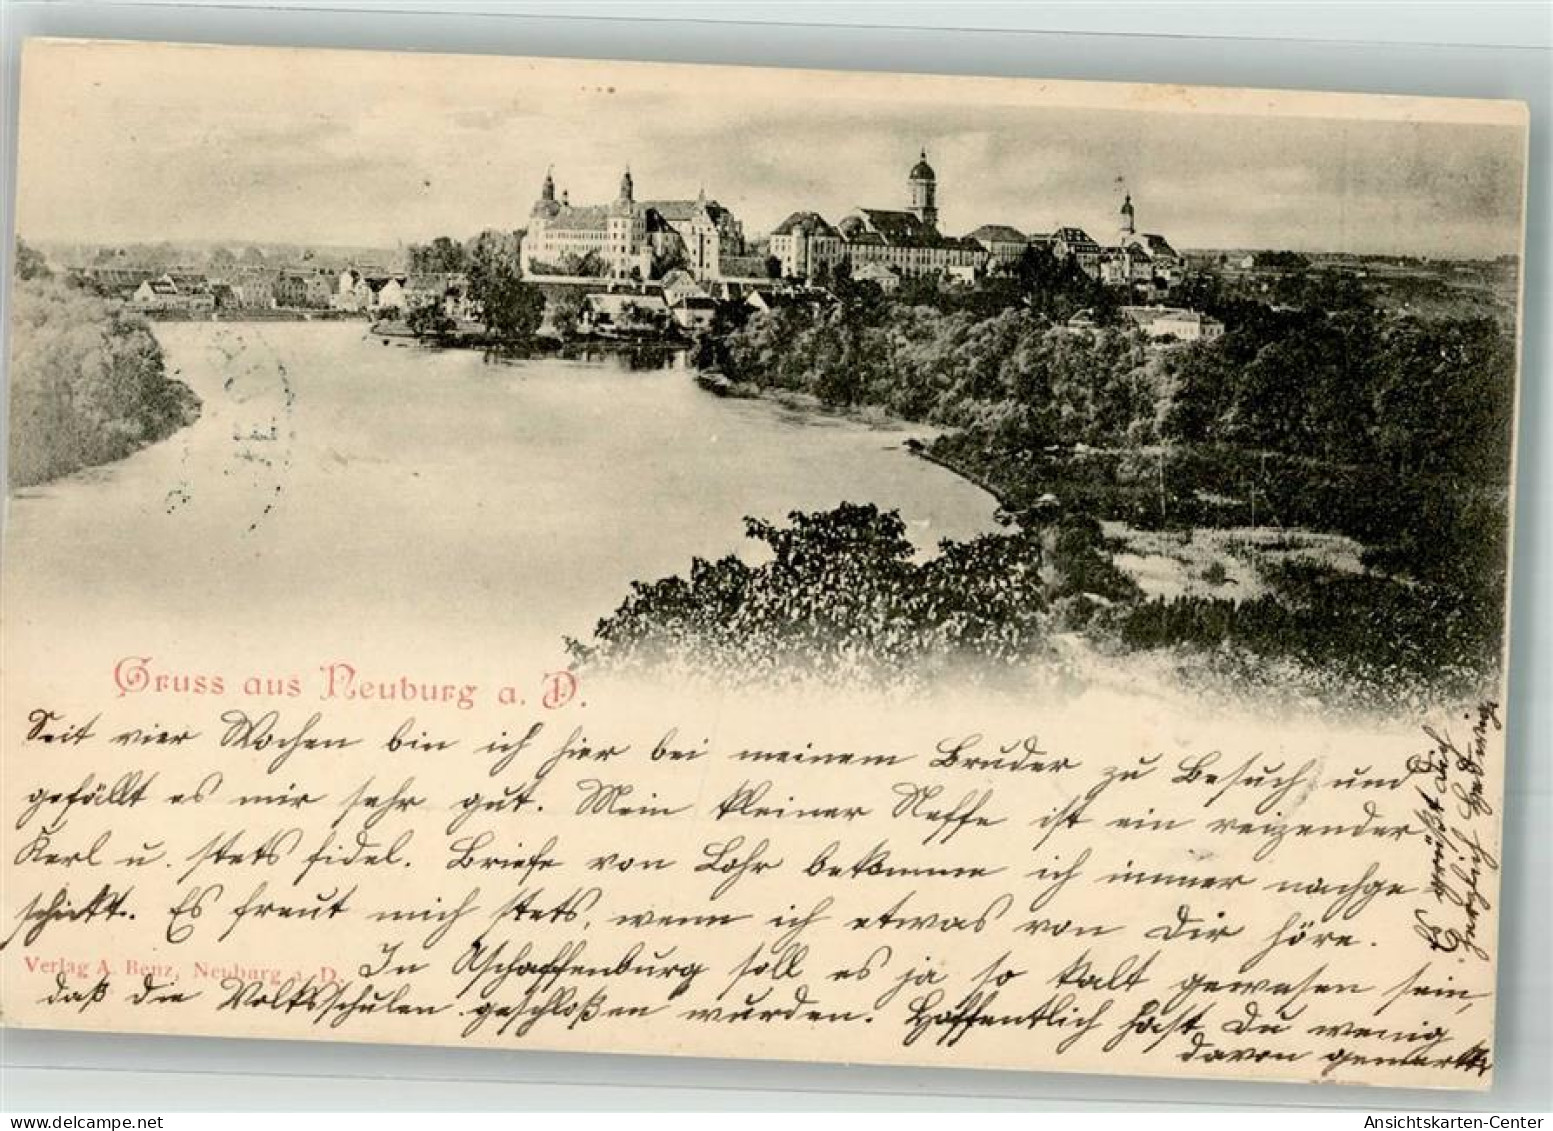 Gruss aus Neuburg a. D.
Seit vier Wochen bin ich hier bei meinem Bruder zu Besuch und
gefällt es mir sehr gut. Mein kleiner Neffe ist ein reizender
Kerl u. stets fidel. Briefe von Lohr bekomme ich immer nachge
schickt. Es freut mich stets, wenn ich etwas von Dir höre.
Verlag A. Benz, Neuburg a. D.
In Aschaffenburg soll es ja so kalt gewesen sein,
daß die Volksschulen geschloßen wurden. Hoffentlich hast Du wenig
davon gemerkt.
Es grüßt Dich
herzlich Hedwig
www.delcampe.net
Ansichtskarten-Center